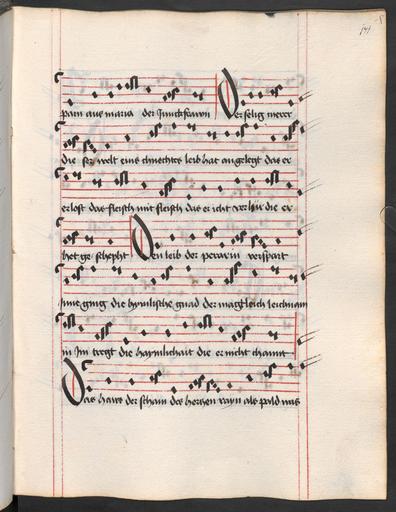 pain aus maria der Junckfrawn Der selig merer
die ser welt eins chnechtes leib hat angelegt das er
erlost das fleisch mit fleisch das er icht verlür die er
het ge schepht Den leib der perærin verspart
Inne gieng die hymlische gnad der magtleich leichnam
in Im tregt die haymlichait die er nicht channt
Das haws der scham des herczen rayn als pald ains